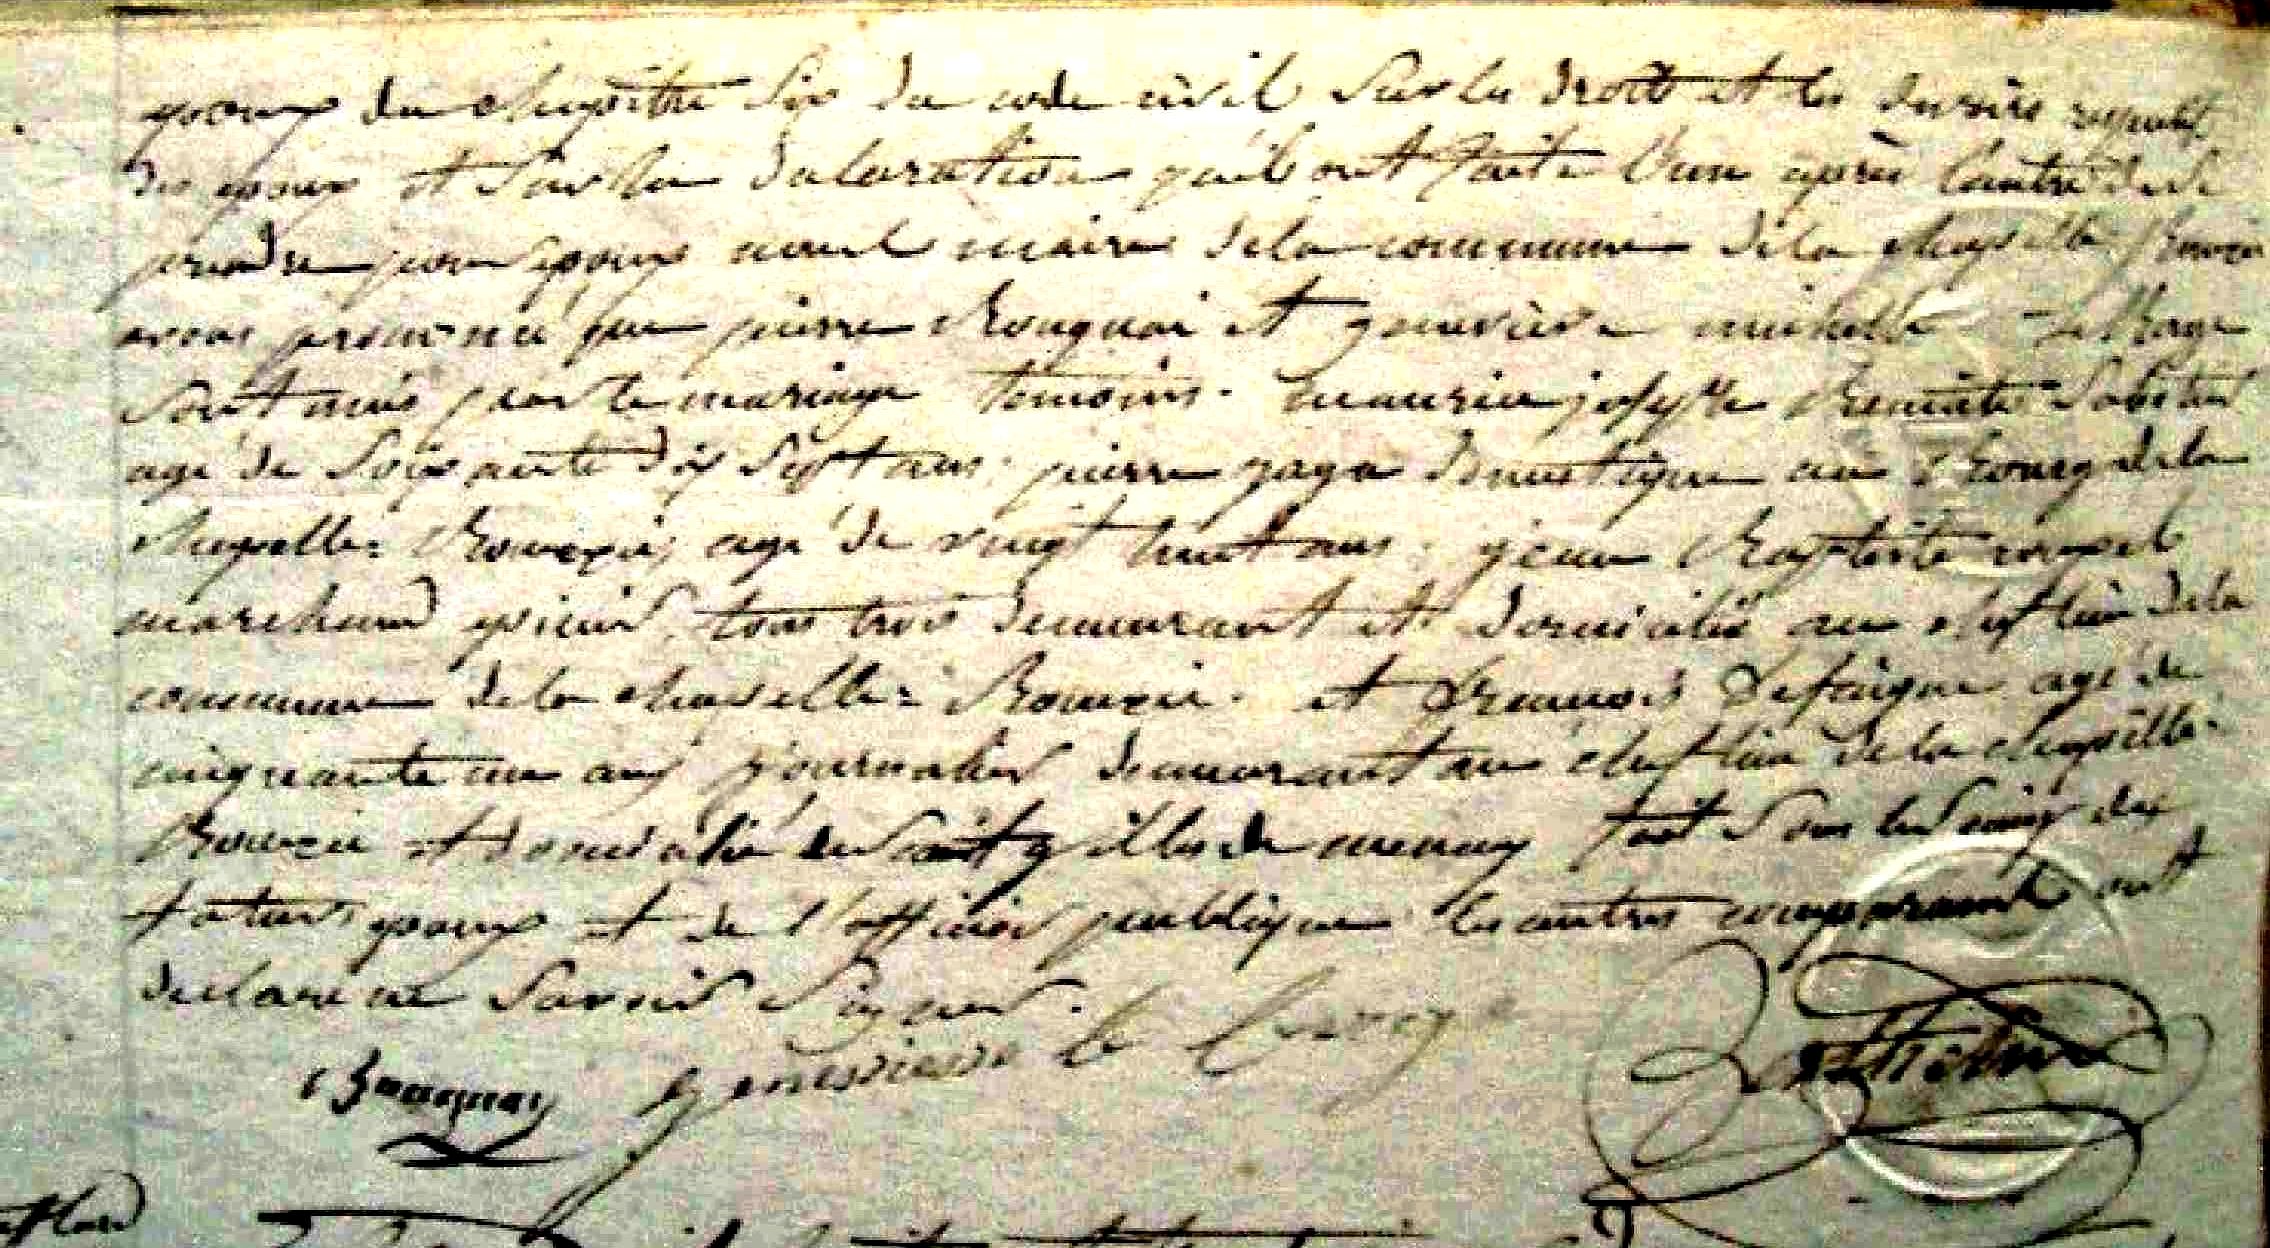 epoux du chapitre six du code civil sur les droits et les devoirs respectifs
des epoux et sur la declaration qu'ils ont faite l'un après l'autre de se
prendre pour epoux nous maire de la commune de la chapelle Bouexic
avons prononcé que pierre Bouquai et genevieve michelle
sont unis par le mariage temoins. maurice joseph
agé de soixante dix sept ans. pierre domestique au Bourg de la
chapelle Bouexic agé de vingt huit ans. jean Baptiste
marchand epicier. tous trois demeurant et domicilié au chef lieu de la
commune de la chapelle = Bouexic. et François agé de
cinquante un ans journalier demeurant au chef lieu de la chapelle
Bouexic et domicilié de saint gilles de tout sous les soing des
futurs epoux et de l'officier publique les autres comparant ont
declaré ne savoir signer.
Bouquay genevieve le